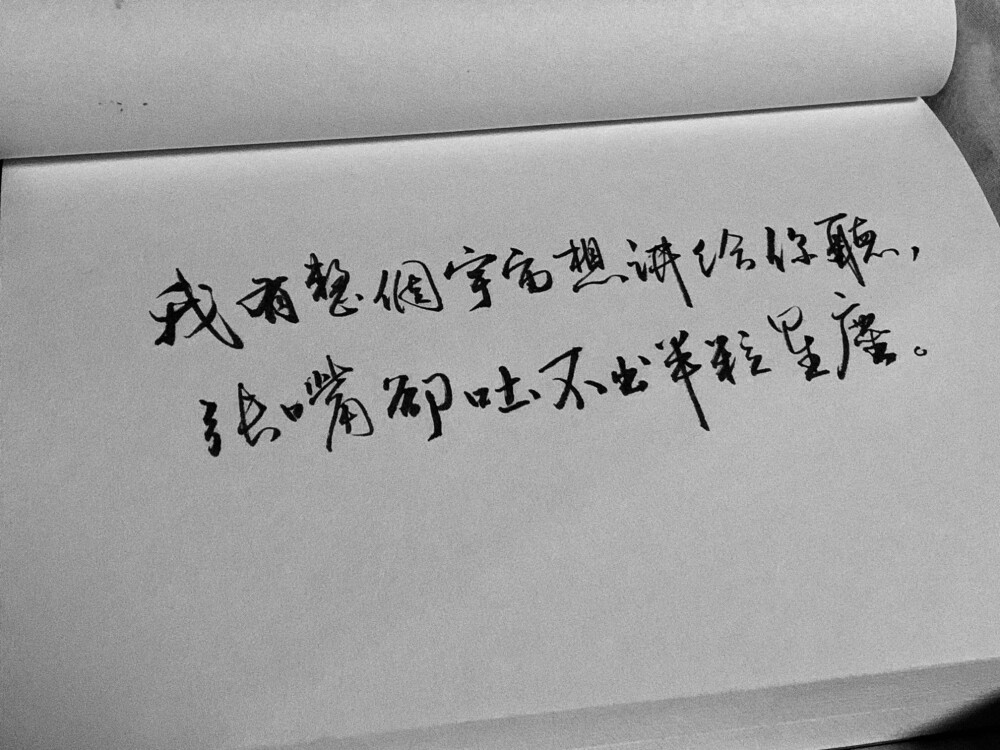 我有整個宇宙想讲给你聽，
张嘴却吐不出半粒星座。